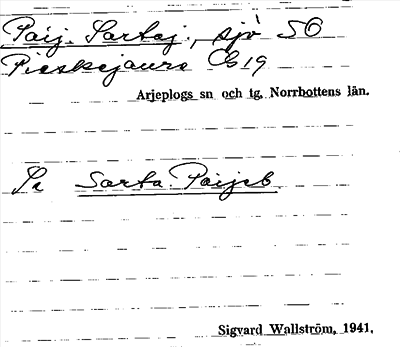 Paij. Sartaj., sjö SO
Pieskejaure Cb 19
Arjeplogs sn och tg, Norrbottens län.
Se Sarta Paijeb
Sigvard Wallström, 1941.